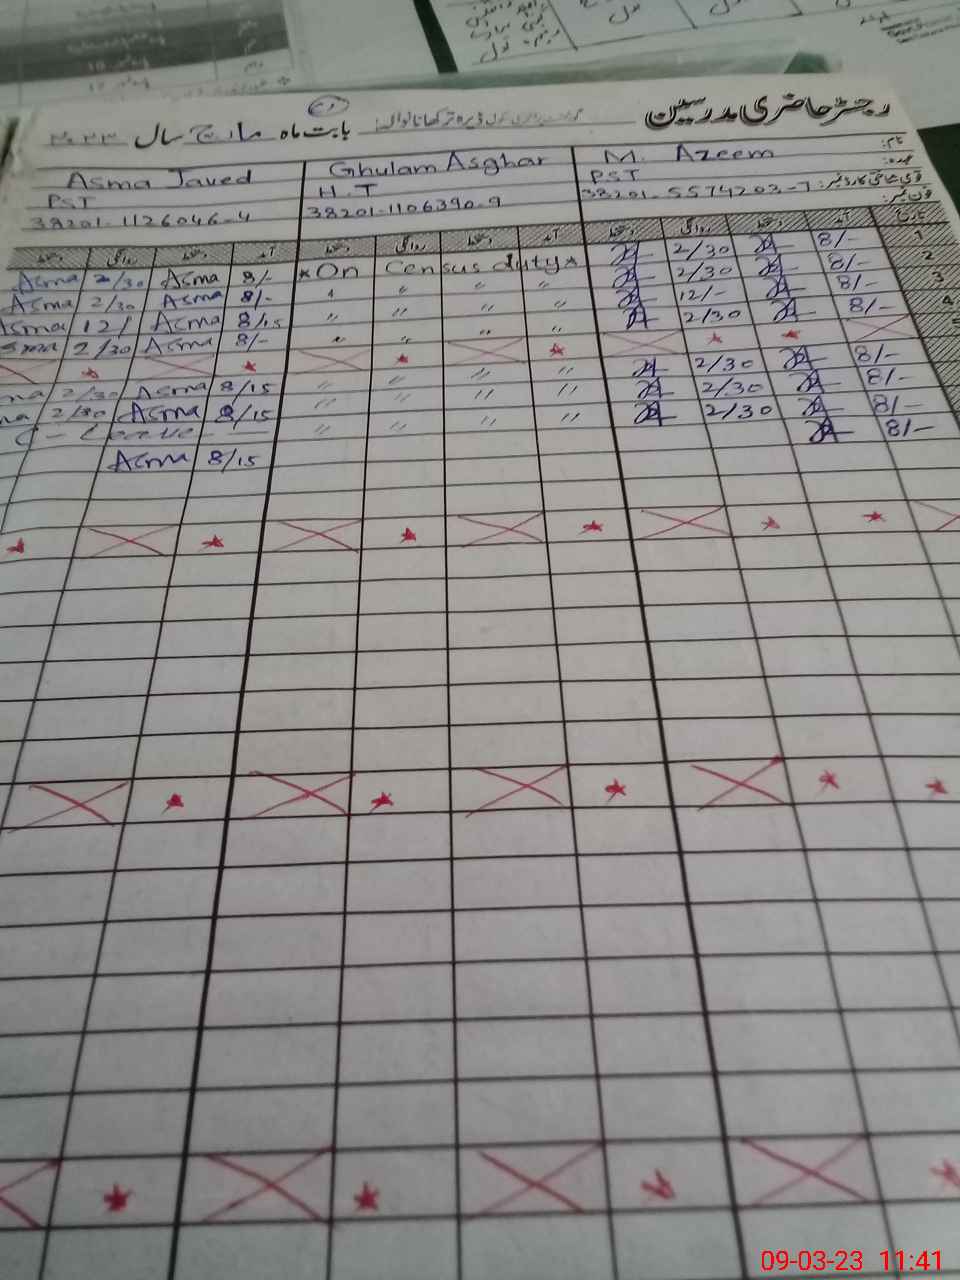 رجسٹر حاضری مدرسین
بابت ماہ مارچ سال ۲۰۲۳
نام:
M. Azeem
Ghulam Asghar
Asma Javed
عہدہ:
PST
H.T
PST
قومی شناختی کارڈ نمبر:
38201-5574203-7
38201-1106390-9
38201-1126046-4
فون نمبر:
تاریخ
آمد دستخط روانگی دستخط آمد دستخط روانگی دستخط آمد دستخط روانگی دستخط
1 8/- 2/30 *On Census duty* 8/- Asma 2/30 Asma
2 8/- 2/30 " " " " 8/- Asma 2/30 Asma
3 8/- 12/- " " " " 8/15 Asma 12/ Asma
4 8/- 2/30 " " " " 8/- Asma 2/30
5
8/- 2/30 " " " " 8/15 Asma 2/30
8/- 2/30 " " " " 8/15 Asma 2/30
8/- 2/30 " " " " C-Leave
8/-
8/15 Asma
09-03-23 11:41